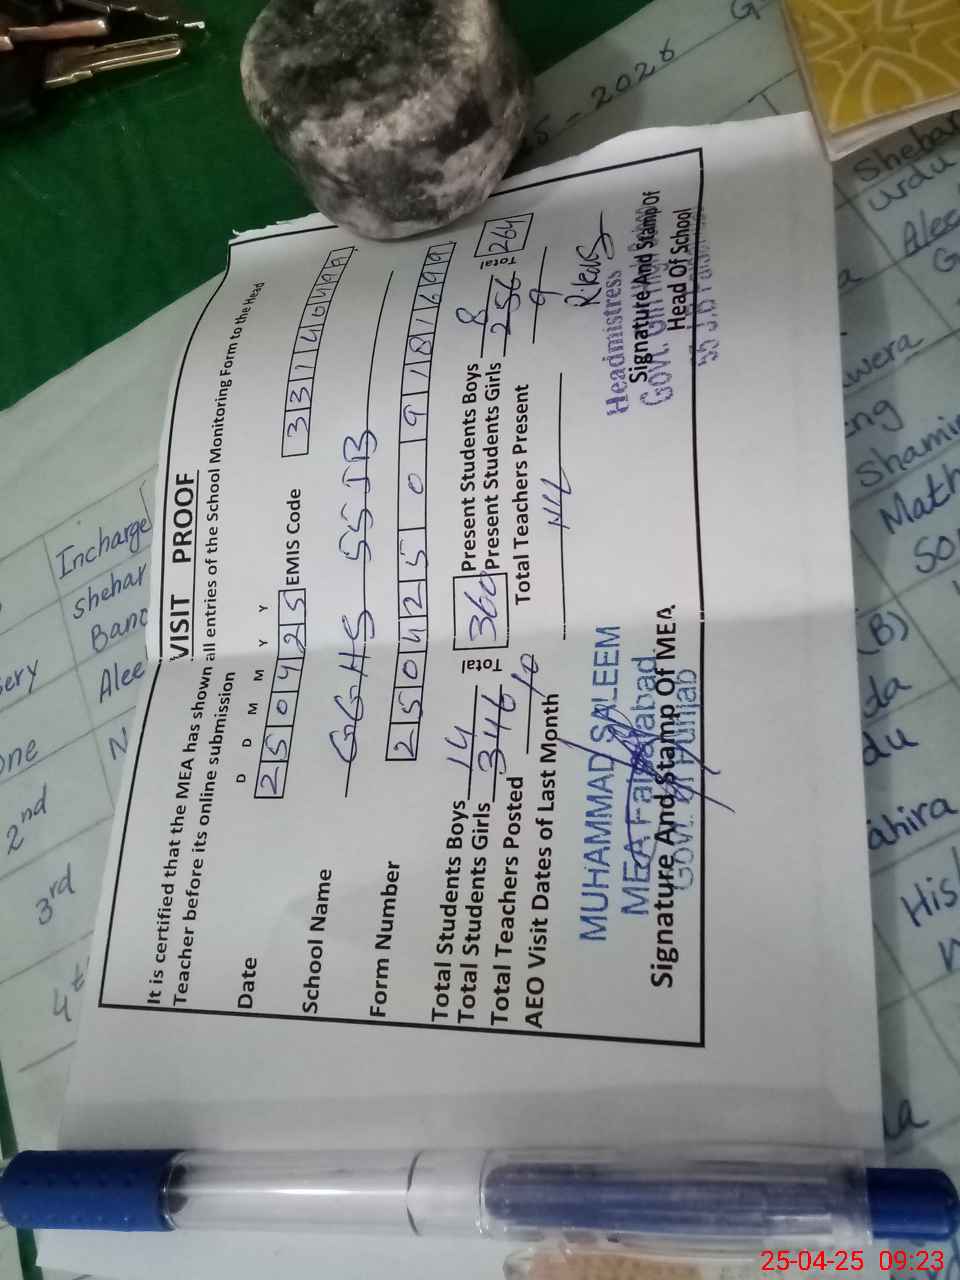 VISIT PROOF
It is certified that the MEA has shown all entries of the School Monitoring Form to the Head
Teacher before its online submission
D D M M Y Y
Date 250425 EMIS Code 33140499
School Name GGHS 55JB
Form Number 25042509181699
Total Students Boys 14 Total 360 Present Students Boys 8 Total 264
Total Students Girls 346 Present Students Girls 256
Total Teachers Posted 10 Total Teachers Present 9
AEO Visit Dates of Last Month Nil
MUHAMMAD SALEEM
MEA Faisalabad
Govt. of Punjab
Signature And Stamp Of MEA
Headmistress
Signature And Stamp Of
Govt. Girl High
Head Of School
2026
Incharge
shehar
Bano
Alee
2nd
3rd
Sheha
urdu
Alee
Eng
Shami
Math
(B)
ahira
His
25-04-25 09:23